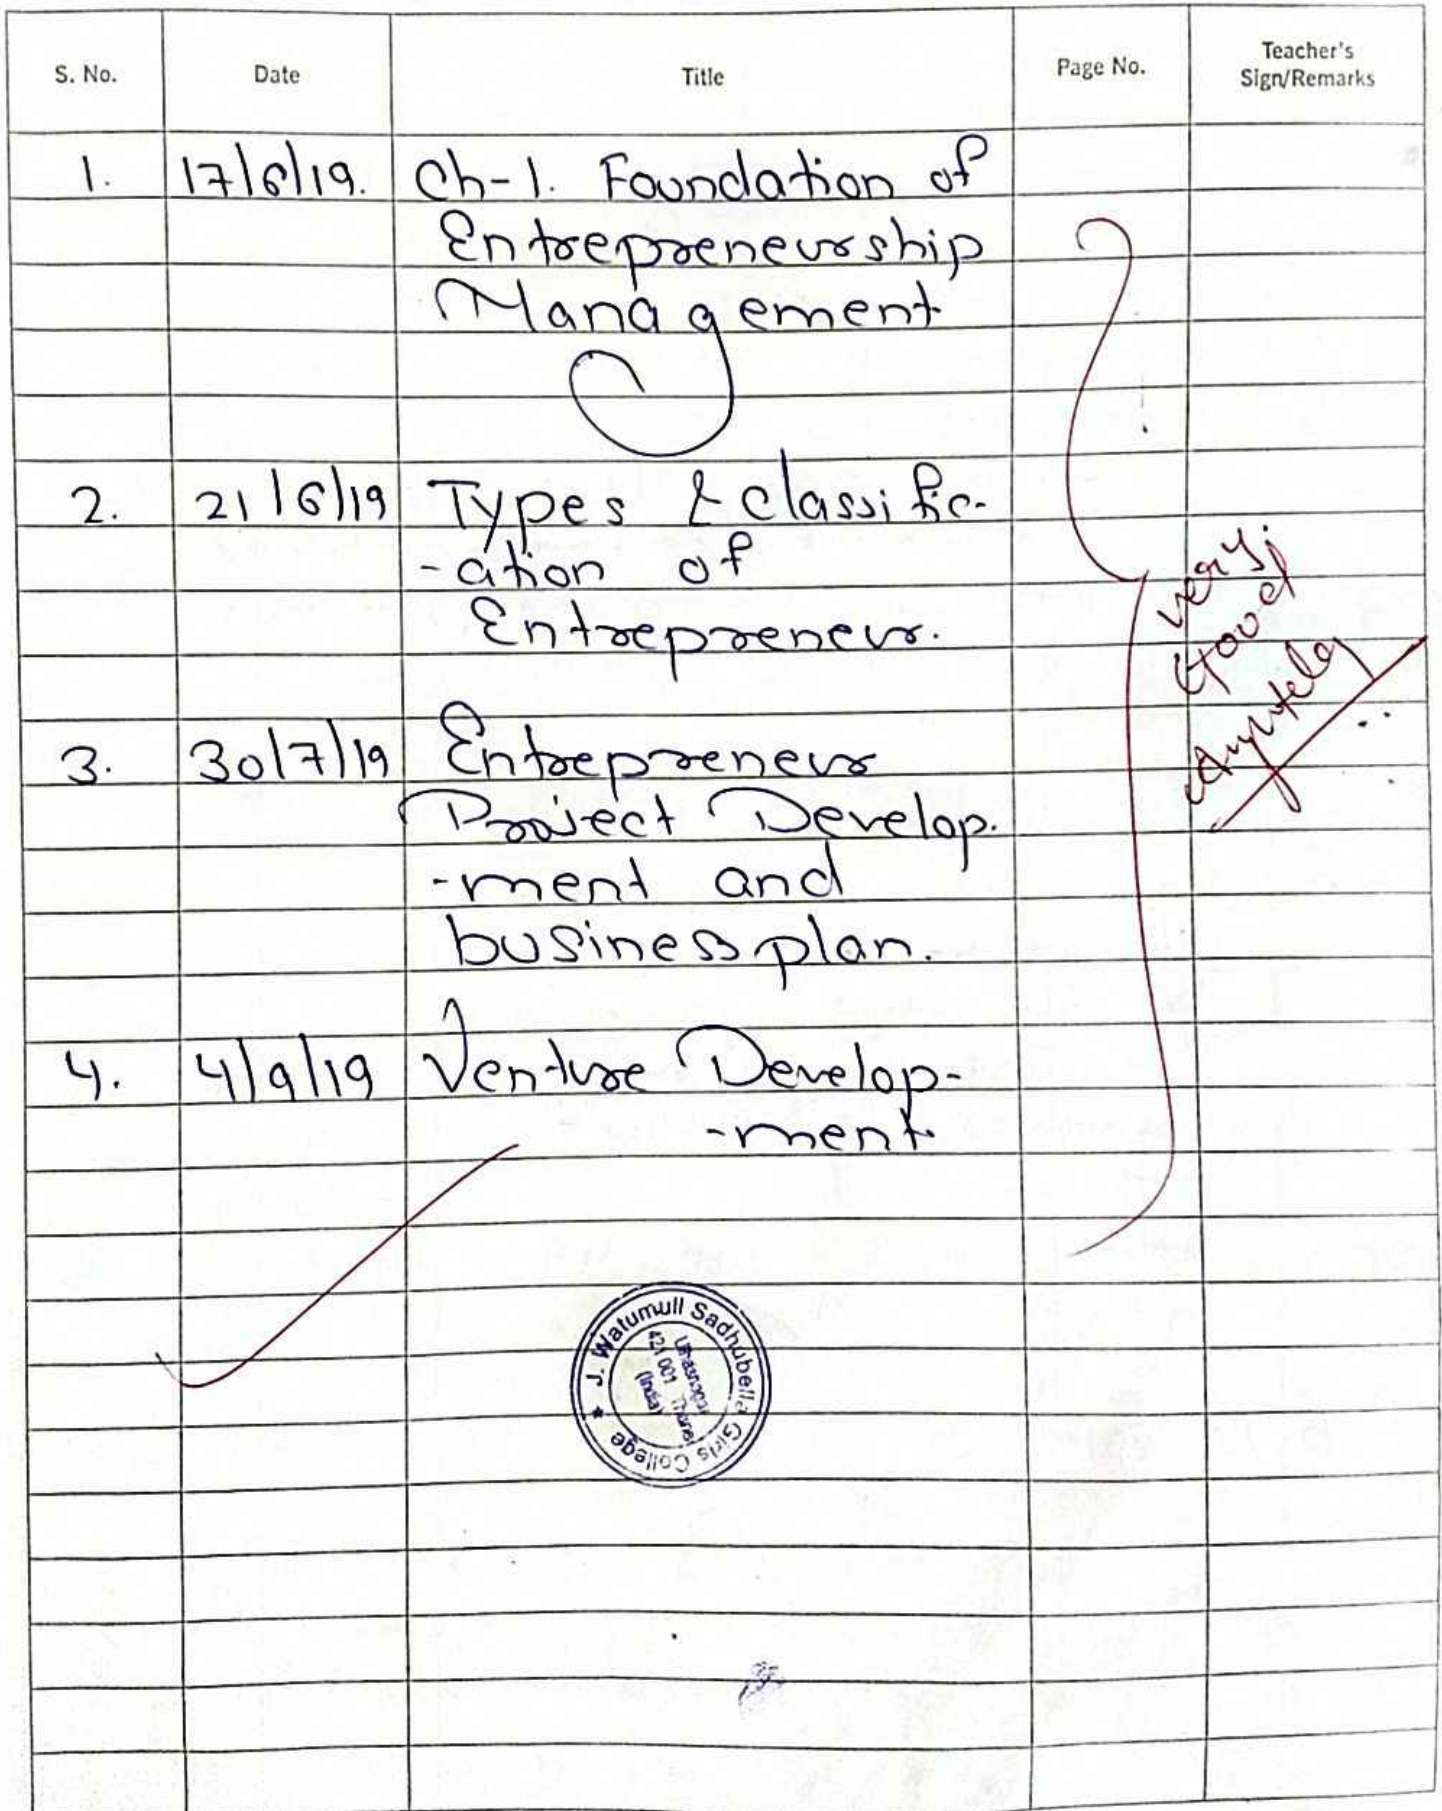 S. No. Date Title Page No. Teacher's Sign/Remarks
1. 17/6/19. Ch-1. Foundation of
Entrepreneurship
Management
2. 21/6/19 Types & classific-
-ation of
Entrepreneur.
3. 30/7/19 Entrepreneur
Project Develop.
-ment and
business plan.
4. 4/9/19 Venture Develop-
-ment
very
Good
J. Watumull Sadhubella Girls College *
Ulhasnagar
421 001 Thane
(India)